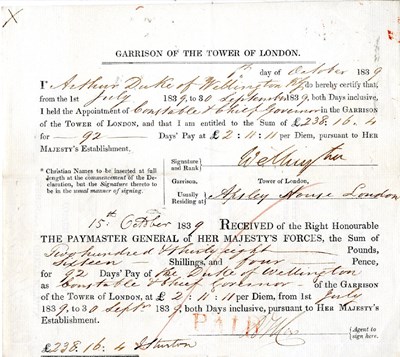 GARRISON OF THE TOWER OF LONDON.
day of October 1839
I Arthur Duke of Wellington do hereby certify that,
from the 1st July 1839, to 30 September 1839, both Days inclusive,
I held the Appointment of Constable & Chief Governor in the GARRISON
OF THE TOWER OF LONDON, and that I am entitled to the Sum of £238.16.4
for — 92 — Days' Pay at £2:11:11 per Diem, pursuant to HER
MAJESTY'S Establishment.
* Christian Names to be inserted at full
length at the commencement of the De-
claration, but the Signature thereto to
be in the usual manner of signing.
Signature
and Rank
Wellington
Garrison.
Tower of London.
Usually
Residing at
Apsley House London
15th October 1839 RECEIVED of the Right Honourable
THE PAYMASTER GENERAL OF HER MAJESTY'S FORCES, the Sum of
Two hundred & thirty eight Pounds,
Sixteen Shillings, and four Pence,
for 92 Days' Pay of the Duke of Wellington
as Constable & Chief Governor of the GARRISON
OF THE TOWER OF LONDON, at £2:11:11 per Diem, from 1st July
1839, to 30 Septr 1839, both Days inclusive, pursuant to HER MAJESTY'S
Establishment.
PAID
Agent to
sign here.
£238.16.4